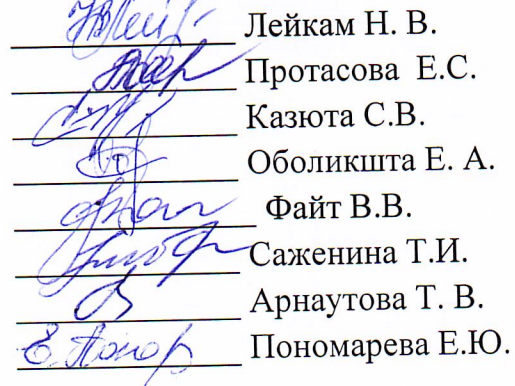 Лейкам Н. В.
Протасова Е.С.
Казюта С.В.
Оболикшта Е. А.
Файт В.В.
Саженина Т.И.
Арнаутова Т. В.
Е. Понор Пономарева Е.Ю.